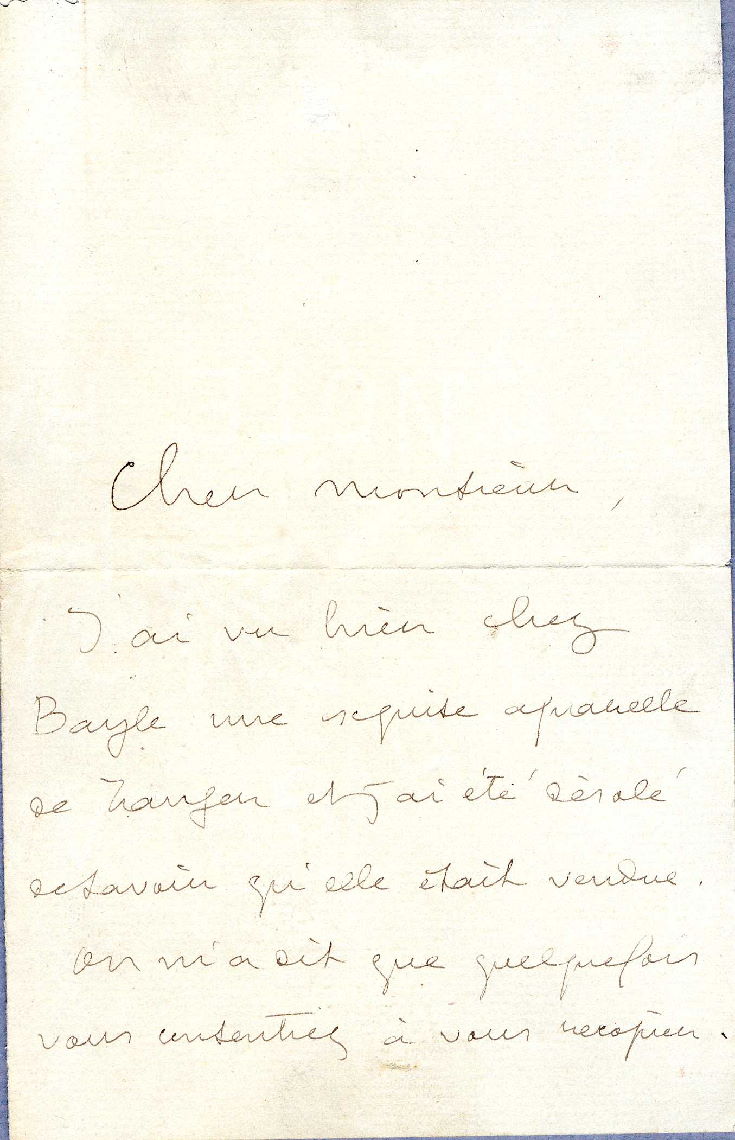 Cher monsieur,
J'ai vu hier chez
Bayle une exquise aquarelle
de et j'ai été désolé
de savoir qu'elle était vendue.
On m'a dit que quelquefois
vous consentiez à vous recopier.